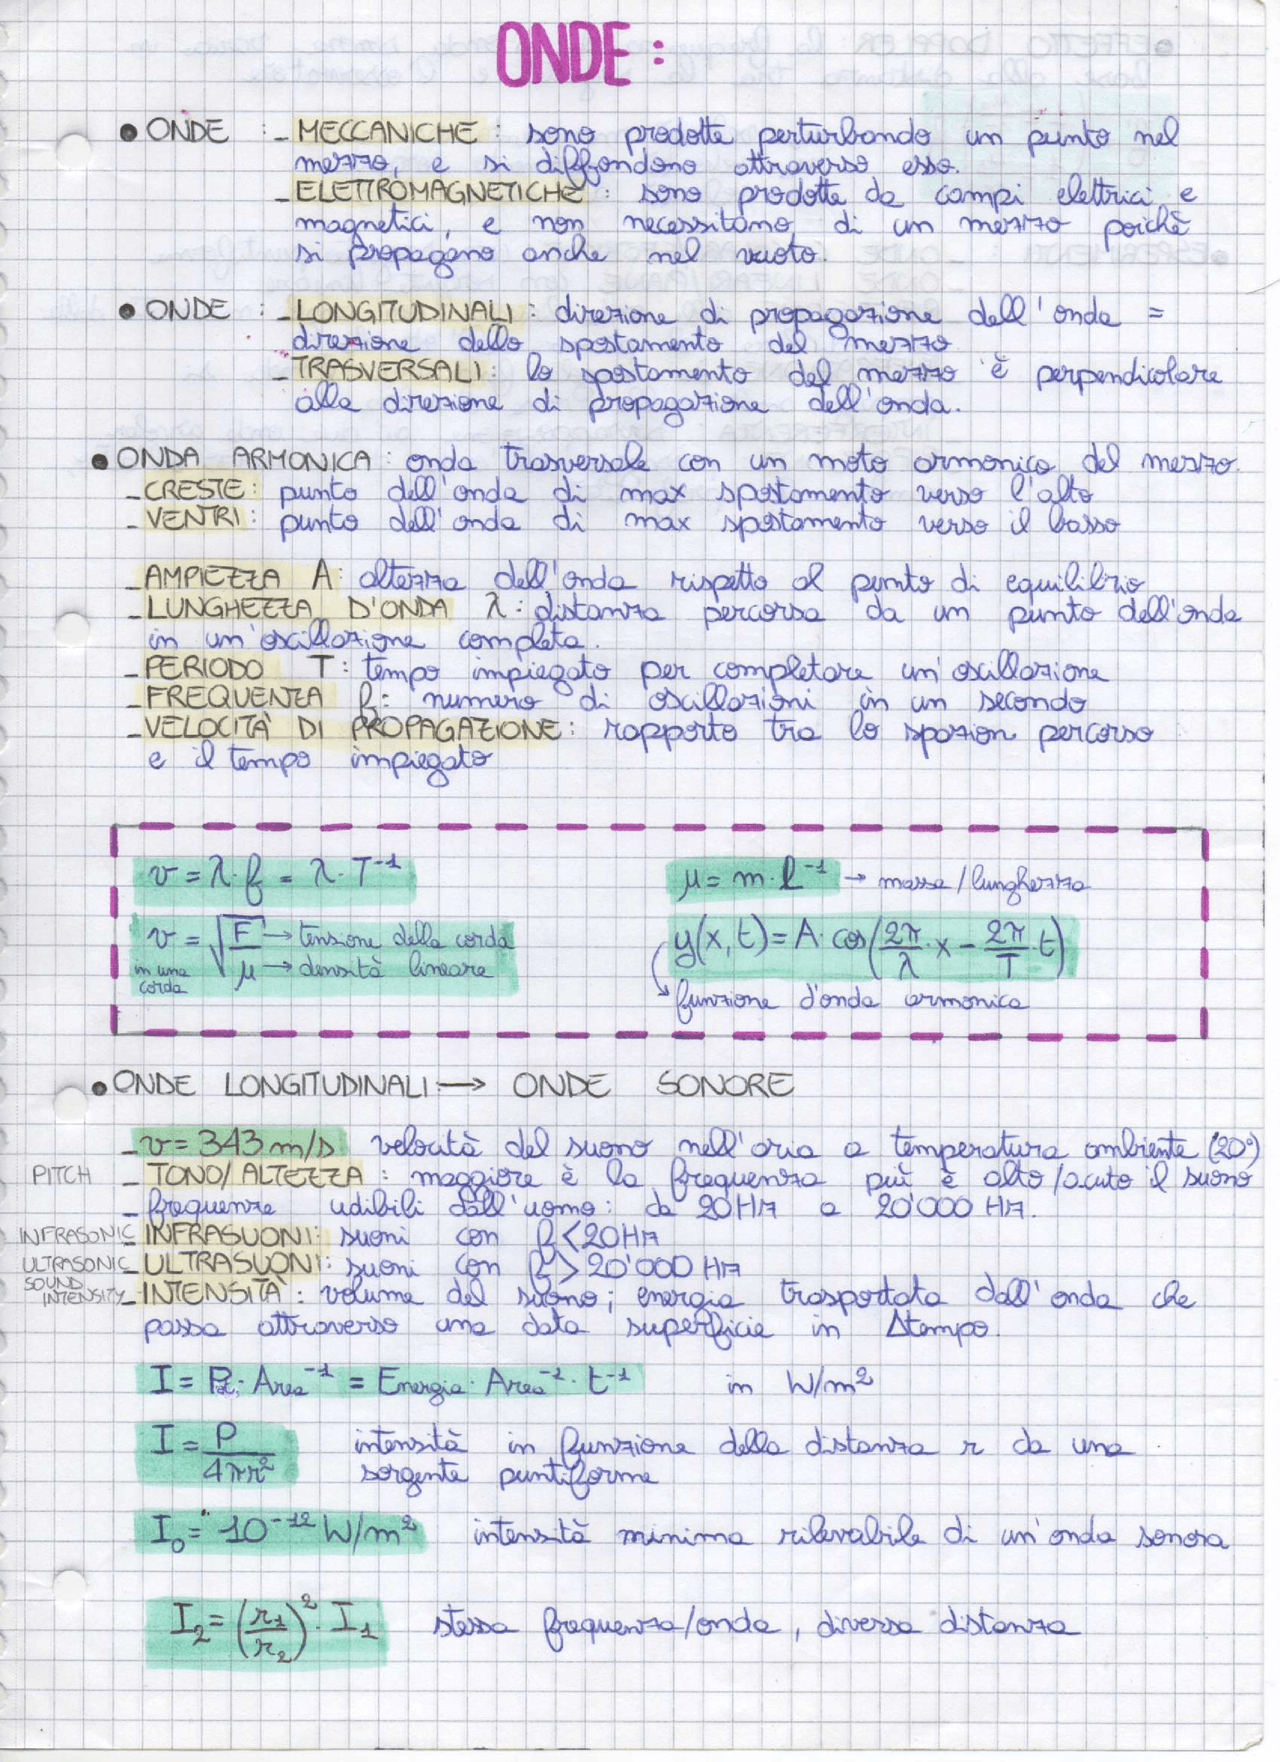 ONDE:
● ONDE : - MECCANICHE : sono prodotte perturbando un punto nel
mezzo, e si diffondono attraverso esso.
- ELETTROMAGNETICHE : sono prodotte da campi elettrici e
magnetici, e non necessitano di un mezzo poichè
si propagano anche nel vuoto.
● ONDE : - LONGITUDINALI : direzione di propagazione dell'onda =
direzione dello spostamento del mezzo
- TRASVERSALI : lo spostamento del mezzo è perpendicolare
alla direzione di propagazione dell'onda.
● ONDA ARMONICA : onda trasversale con un moto armonico del mezzo.
- CRESTE : punto dell'onda di max spostamento verso l'alto
- VENTRI : punto dell'onda di max spostamento verso il basso
- AMPIEZZA A : altezza dell'onda rispetto al punto di equilibrio
- LUNGHEZZA D'ONDA λ : distanza percorsa da un punto dell'onda
in un'oscillazione completa.
- PERIODO T : tempo impiegato per completare un'oscillazione
- FREQUENZA f : numero di oscillazioni in un secondo
- VELOCITÀ DI PROPAGAZIONE : rapporto tra lo spazion percorso
e il tempo impiegato
v = λ · f = λ · T⁻¹
μ = m · l⁻¹ → massa/lunghezza
v = √(F/μ) F → tensione della corda
in una corda μ → densità lineare
y(x, t) = A · cos(2π/λ · x − 2π/T · t)
↳ funzione d'onda armonica
● ONDE LONGITUDINALI → ONDE SONORE
- v = 343 m/s velocità del suono nell'aria a temperatura ambiente (20°)
PITCH - TONO/ALTEZZA : maggiore è la frequenza più è alto/acuto il suono
- frequenze udibili dall'uomo : da 20 Hz a 20'000 Hz.
INFRASONIC - INFRASUONI : suoni con f < 20 Hz
ULTRASONIC - ULTRASUONI : suoni con f > 20'000 Hz
SOUND INTENSITY - INTENSITÀ : volume del suono ; energia trasportata dall'onda che
passa attraverso una data superficie in Δtempo.
I = Pot. · Area⁻¹ = Energia · Area⁻¹ · t⁻¹ in W/m²
I = P/4πr² intensità in funzione della distanza r da una
sorgente puntiforme
I₀ = 10⁻¹² W/m² intensità minima rilevabile di un'onda sonora
I₂ = (r₁/r₂)² · I₁ stessa frequenza/onda, diversa distanza